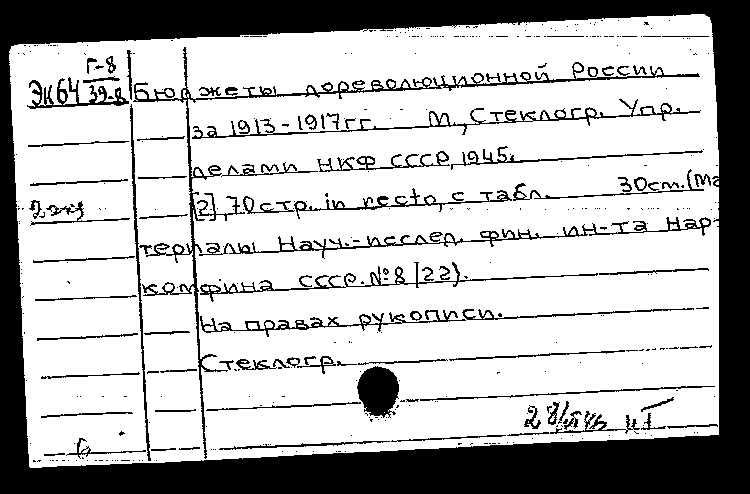 Г-8
ЭК64 39-8 Бюджеты дореволюционной России
за 1913-1917гг. М., Стеклогр. Упр.
делами НКФ СССР, 1945.
2 экз [2], 70 стр. in recto, с табл. 30см. (Ма
териалы Науч.-исслед. фин. ин-та Нар-
комфина СССР. №8 (22).
На правах рукописи.
Стеклогр.
28/
б